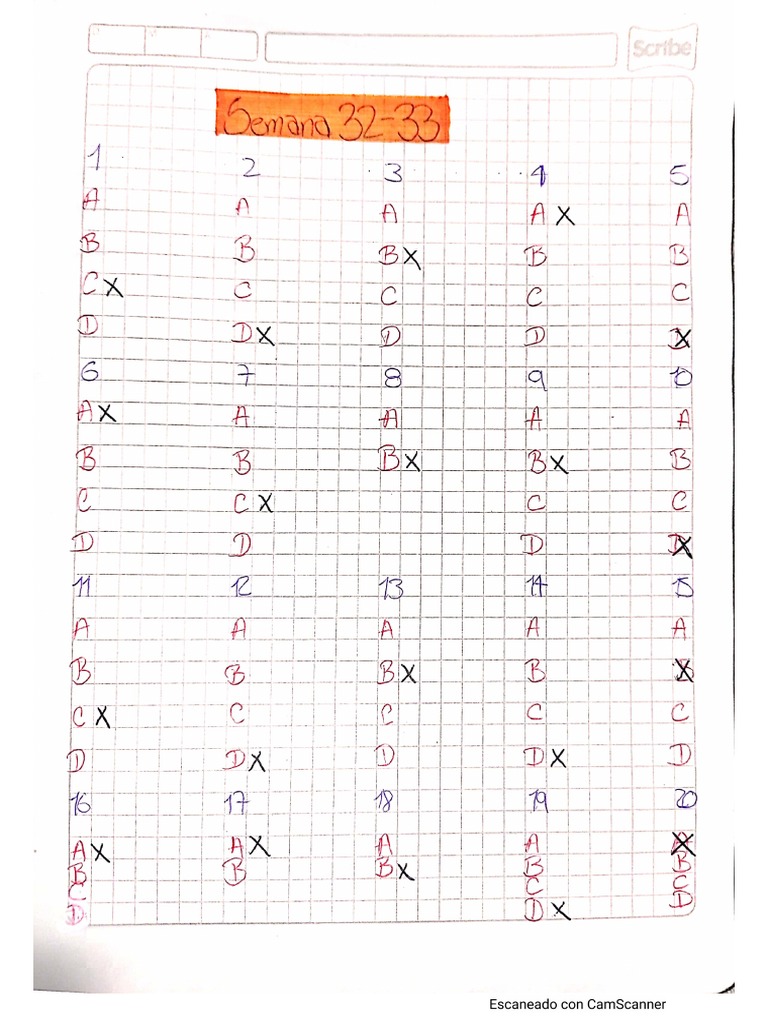 Scribe
Semana 32-33
1 2 3 4 5
A A A A X A
B B B X B B
C X C C C C
D D X D D D X
6 7 8 9 10
A X A A A A
B B B X B X B
C C X C C
D D D D X
11 12 13 14 15
A A A A A
B B B X B B X
C X C C C C
D D X D D X D
16 17 18 19 20
A X A X A A A X
B B B X B B
C C C
D D X D
Escaneado con CamScanner